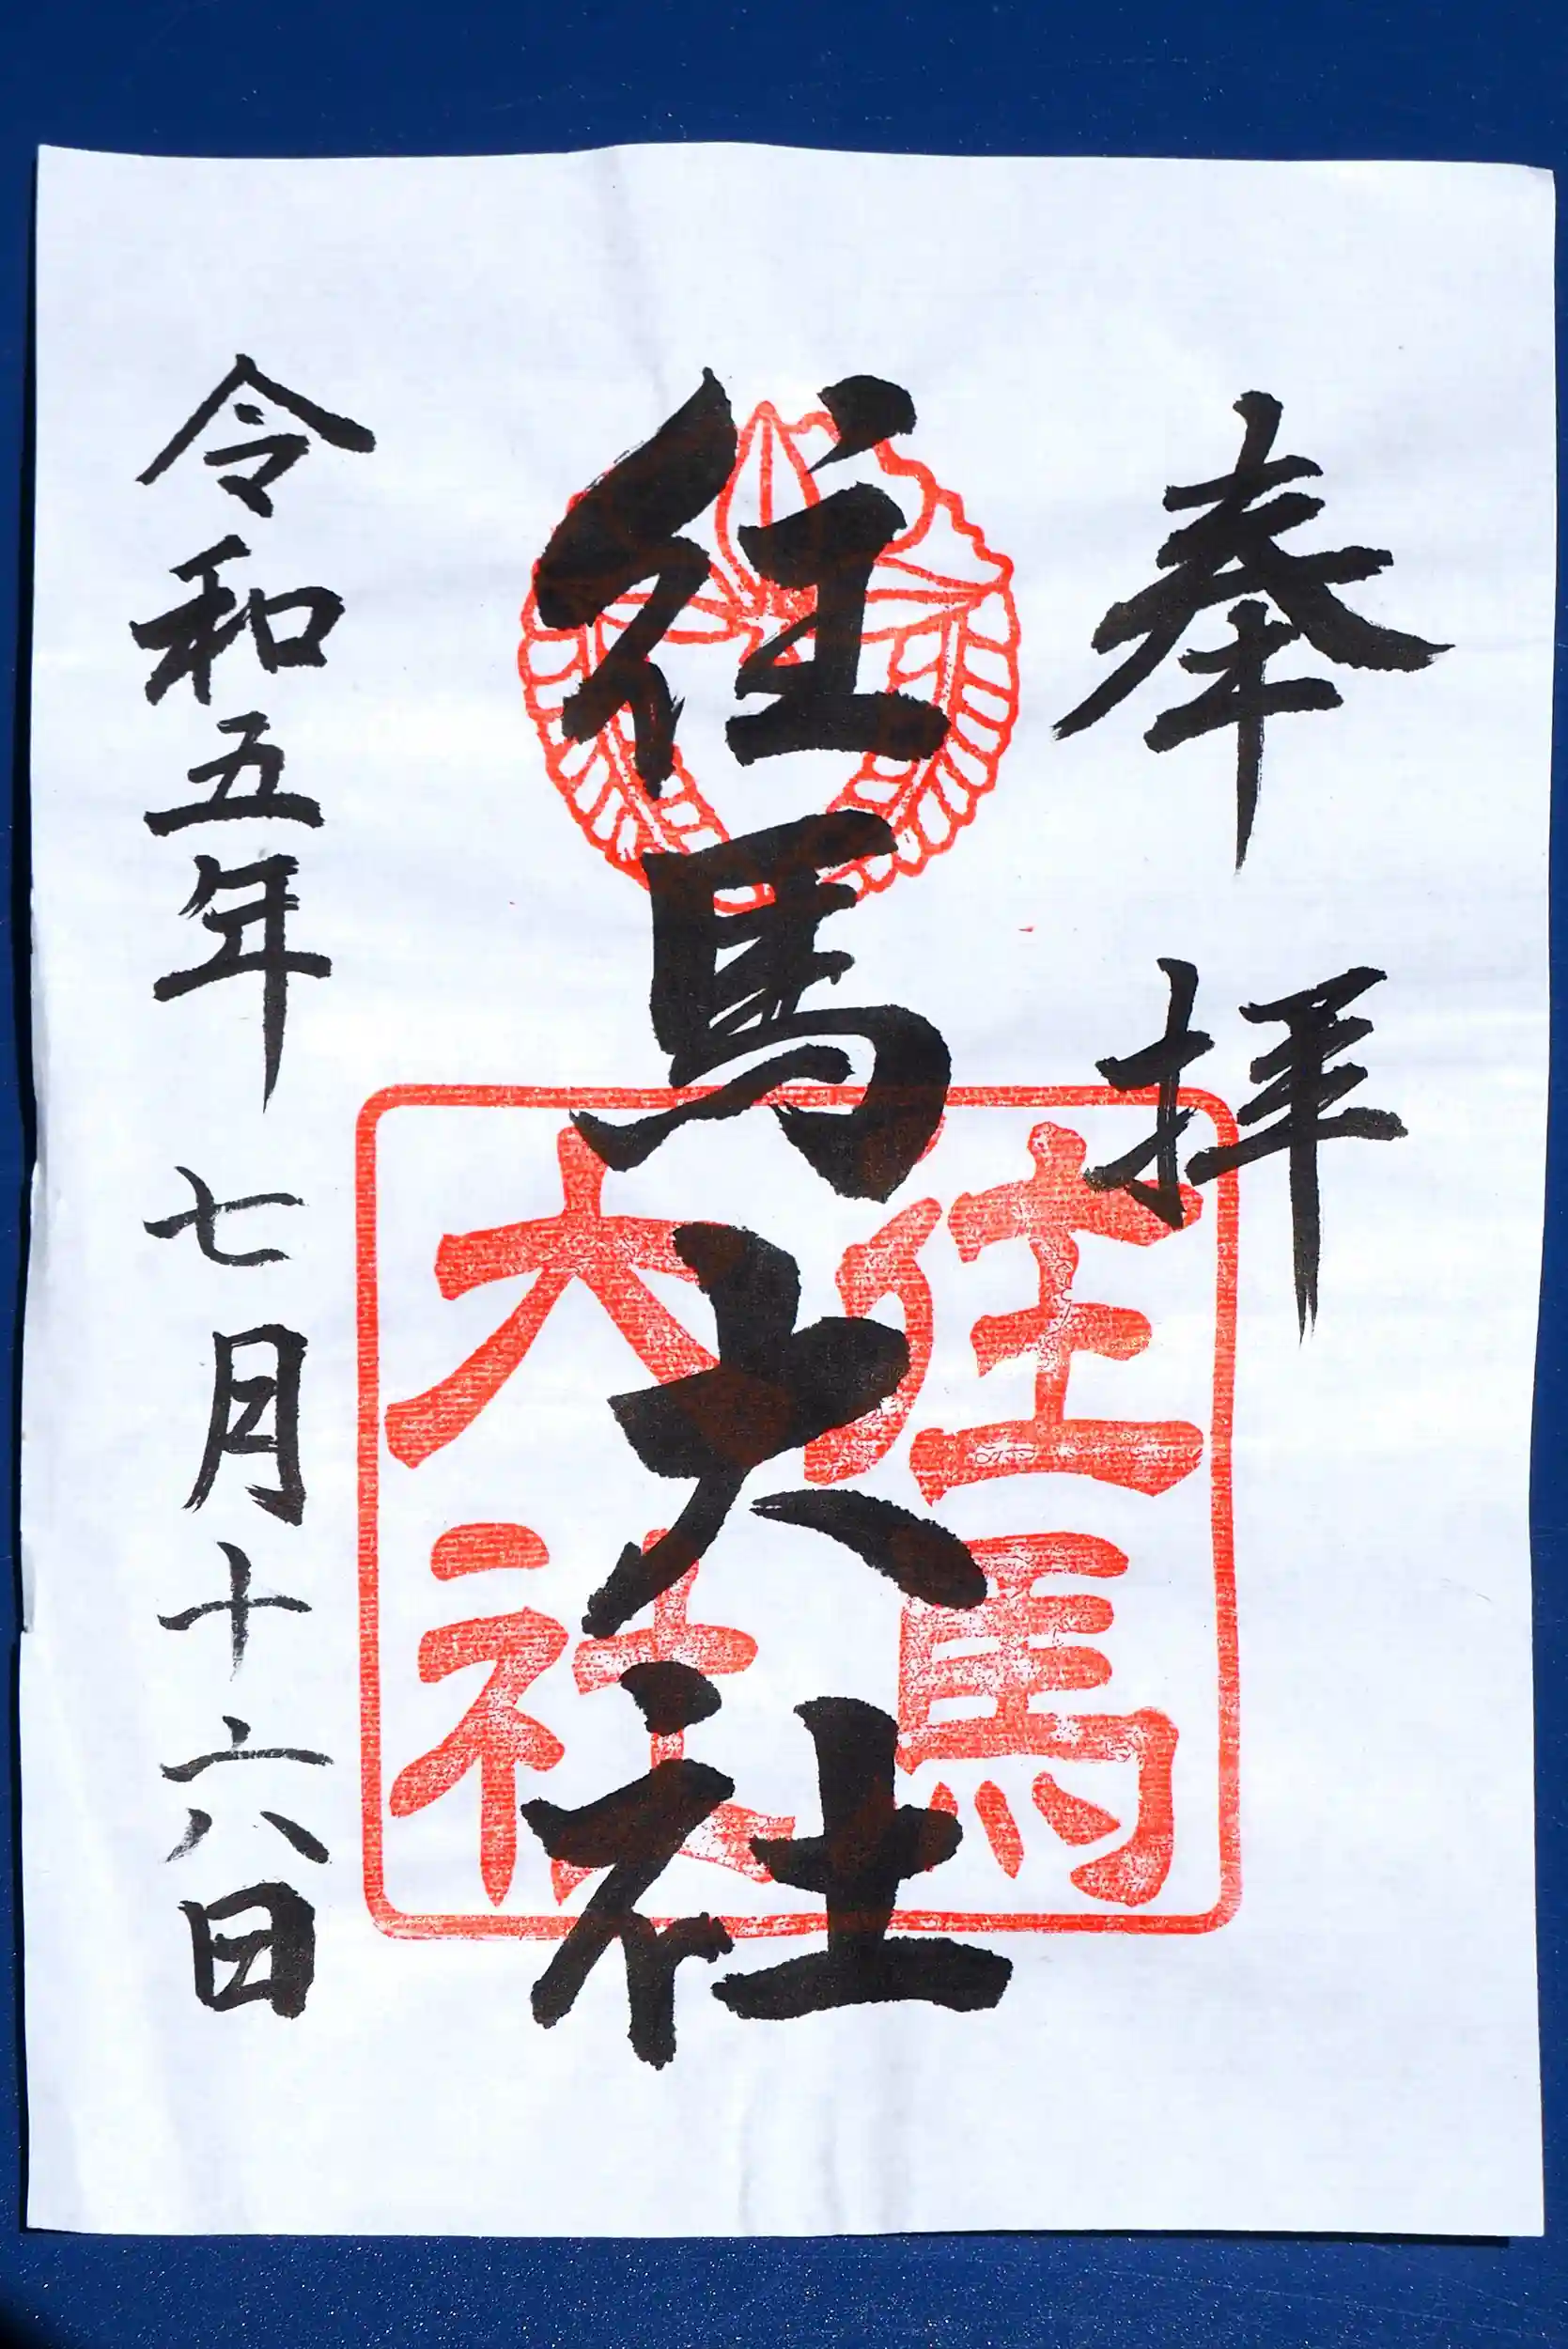 奉拝
往馬大社
往馬
大社
令和五年 七月十六日